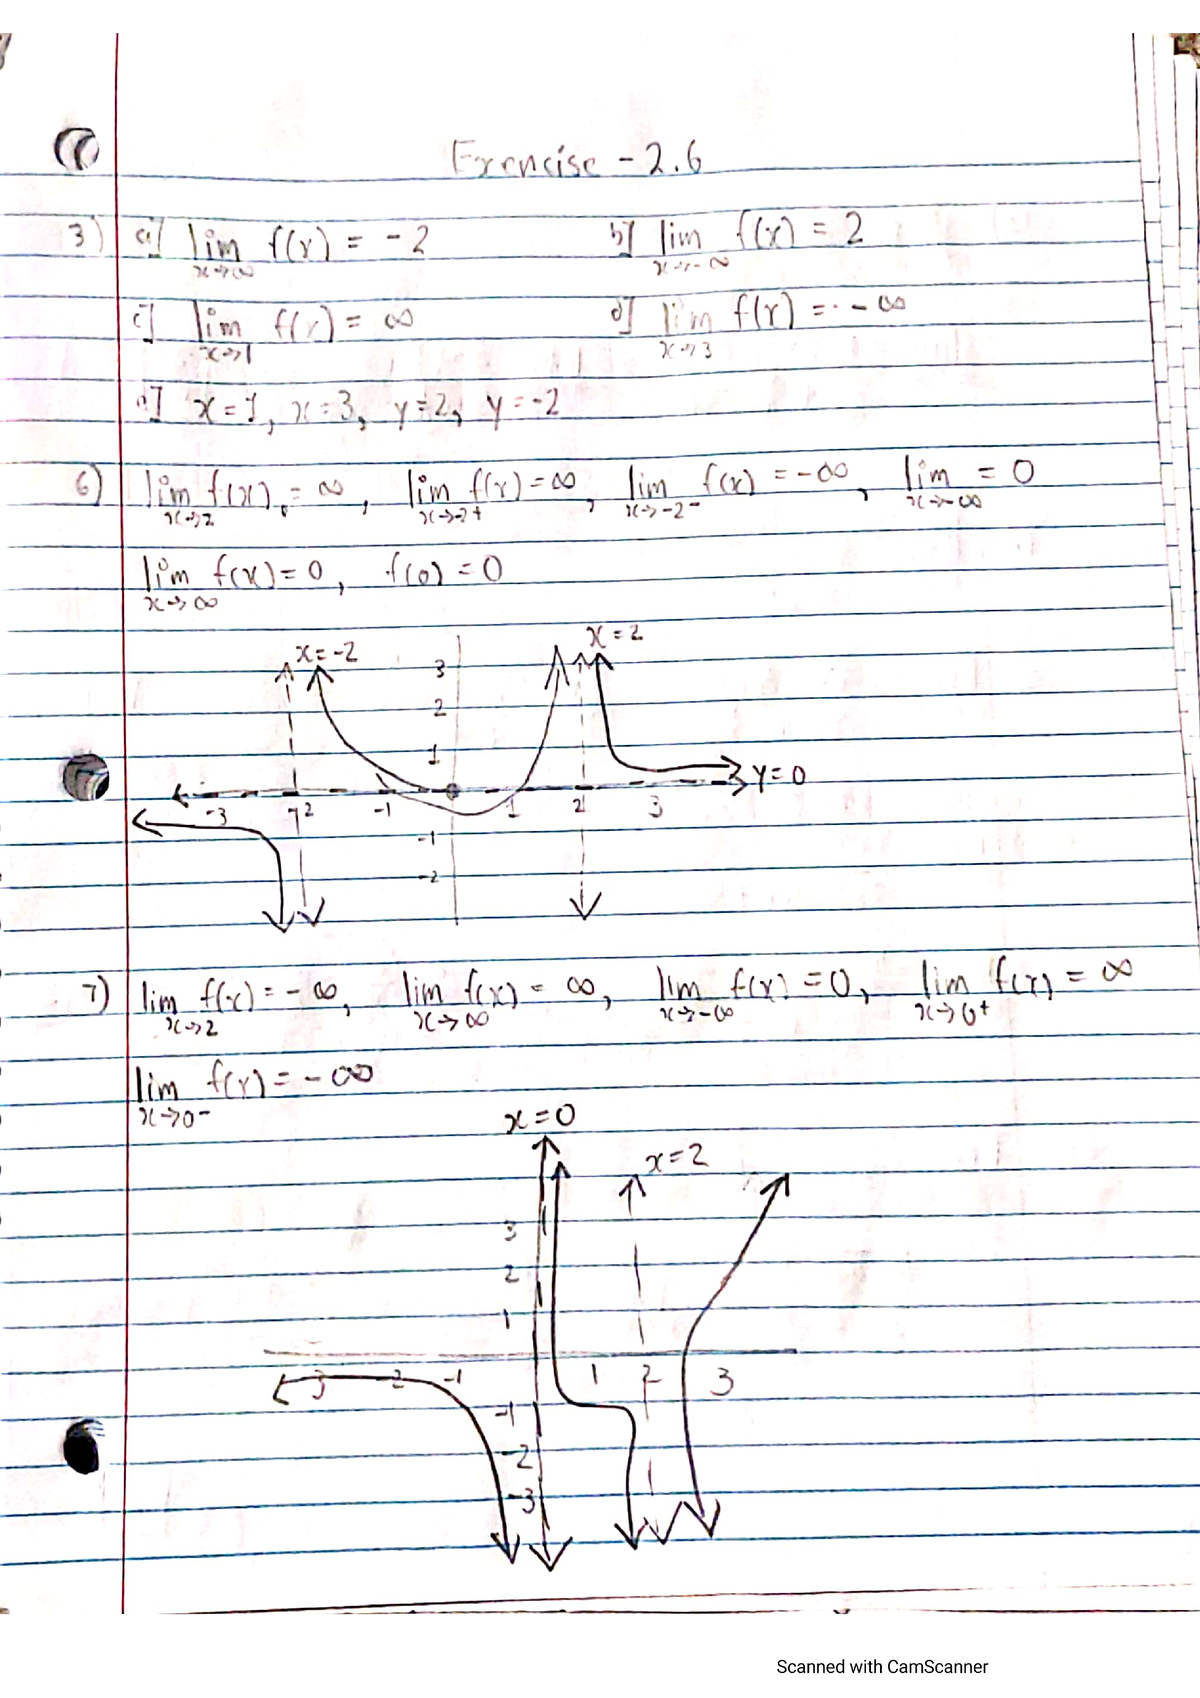 Exercise - 2.6
3) a] lim x→∞ f(x) = -2 b] lim x→-∞ f(x) = 2
c] lim x→1 f(x) = ∞ d] lim x→3 f(x) = -∞
e] x=1, x=3, y=2, y=-2
6) lim x→2 f(x) = ∞, lim x→-2+ f(x) = ∞, lim x→-2- f(x) = -∞, lim x→-∞ = 0
lim x→∞ f(x) = 0, f(0) = 0
x=2
x=-2 3
2
1
y=0
-3 -2 -1 1 2 3
-1
-2
7) lim x→2 f(x) = -∞, lim x→∞ f(x) = ∞, lim x→-∞ f(x) = 0, lim x→0+ f(x) = ∞
lim x→0- f(x) = -∞
x=0
x=2
3
2
1
-3 -2 -1 1 2 3
-1
-2
-3
Scanned with CamScanner